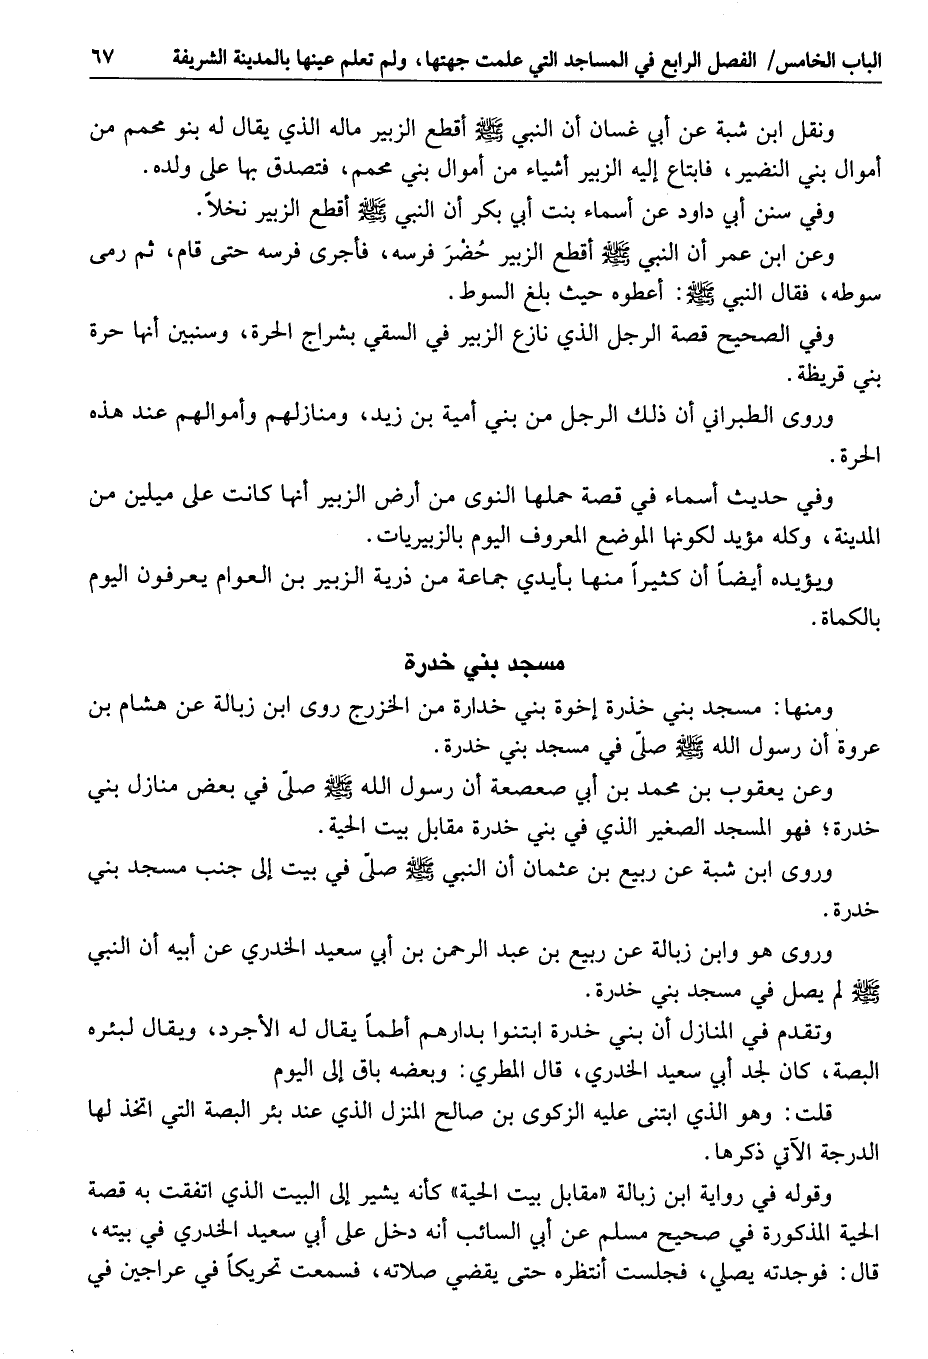 الباب الخامس/ الفصل الرابع في المساجد التي علمت جهتها، ولم تعلم عينها بالمدينة الشريفة ٦٧
ونقل ابن شبة عن أبي غسان أن النبي ﷺ أقطع الزبير ماله الذي يقال له بنو محمم من
أموال بني النضير، فابتاع إليه الزبير أشياء من أموال بني محمم، فتصدق بها على ولده.
وفي سنن أبي داود عن أسماء بنت أبي بكر أن النبي ﷺ أقطع الزبير نخلاً.
وعن ابن عمر أن النبي ﷺ أقطع الزبير حُضْرَ فرسه، فأجرى فرسه حتى قام، ثم رمى
سوطه، فقال النبي ﷺ: أعطوه حيث بلغ السوط.
وفي الصحيح قصة الرجل الذي نازع الزبير في السقي بشراج الحرة، وسنبين أنها حرة
بني قريظة.
وروى الطبراني أن ذلك الرجل من بني أمية بن زيد، ومنازلهم وأموالهم عند هذه
الحرة.
وفي حديث أسماء في قصة حملها النوى من أرض الزبير أنها كانت على ميلين من
المدينة، وكله مؤيد لكونها الموضع المعروف اليوم بالزبيريات.
ويؤيده أيضاً أن كثيراً منها بأيدي جماعة من ذرية الزبير بن العوام يعرفون اليوم
بالكماة.
مسجد بني خدرة
ومنها: مسجد بني خذرة إخوة بني خدارة من الخزرج روى ابن زبالة عن هشام بن
عروة أن رسول الله ﷺ صلّى في مسجد بني خدرة.
وعن يعقوب بن محمد بن أبي صعصعة أن رسول الله ﷺ صلّى في بعض منازل بني
خدرة؛ فهو المسجد الصغير الذي في بني خدرة مقابل بيت الحية.
وروى ابن شبة عن ربيع بن عثمان أن النبي ﷺ صلّى في بيت إلى جنب مسجد بني
خدرة.
وروى هو وابن زبالة عن ربيع بن عبد الرحمن بن أبي سعيد الخدري عن أبيه أن النبي
ﷺ لم يصل في مسجد بني خدرة.
وتقدم في المنازل أن بني خدرة ابتنوا بدارهم أطماً يقال له الأجرد، ويقال لبئره
البصة، كان لجد أبي سعيد الخدري، قال المطري: وبعضه باق إلى اليوم
قلت: وهو الذي ابتنى عليه الزكوى بن صالح المنزل الذي عند بئر البصة التي اتخذ لها
الدرجة الآتي ذكرها.
وقوله في رواية ابن زبالة «مقابل بيت الحية» كأنه يشير إلى البيت الذي اتفقت به قصة
الحية المذكورة في صحيح مسلم عن أبي السائب أنه دخل على أبي سعيد الخدري في بيته،
قال: فوجدته يصلي، فجلست أنتظره حتى يقضي صلاته، فسمعت تحريكاً في عراجين في